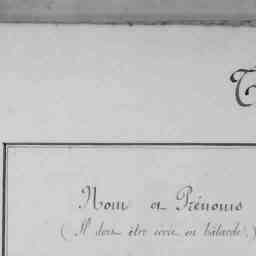 T
Nom et Prénoms
(Il doit être écrit en bâtarde.)